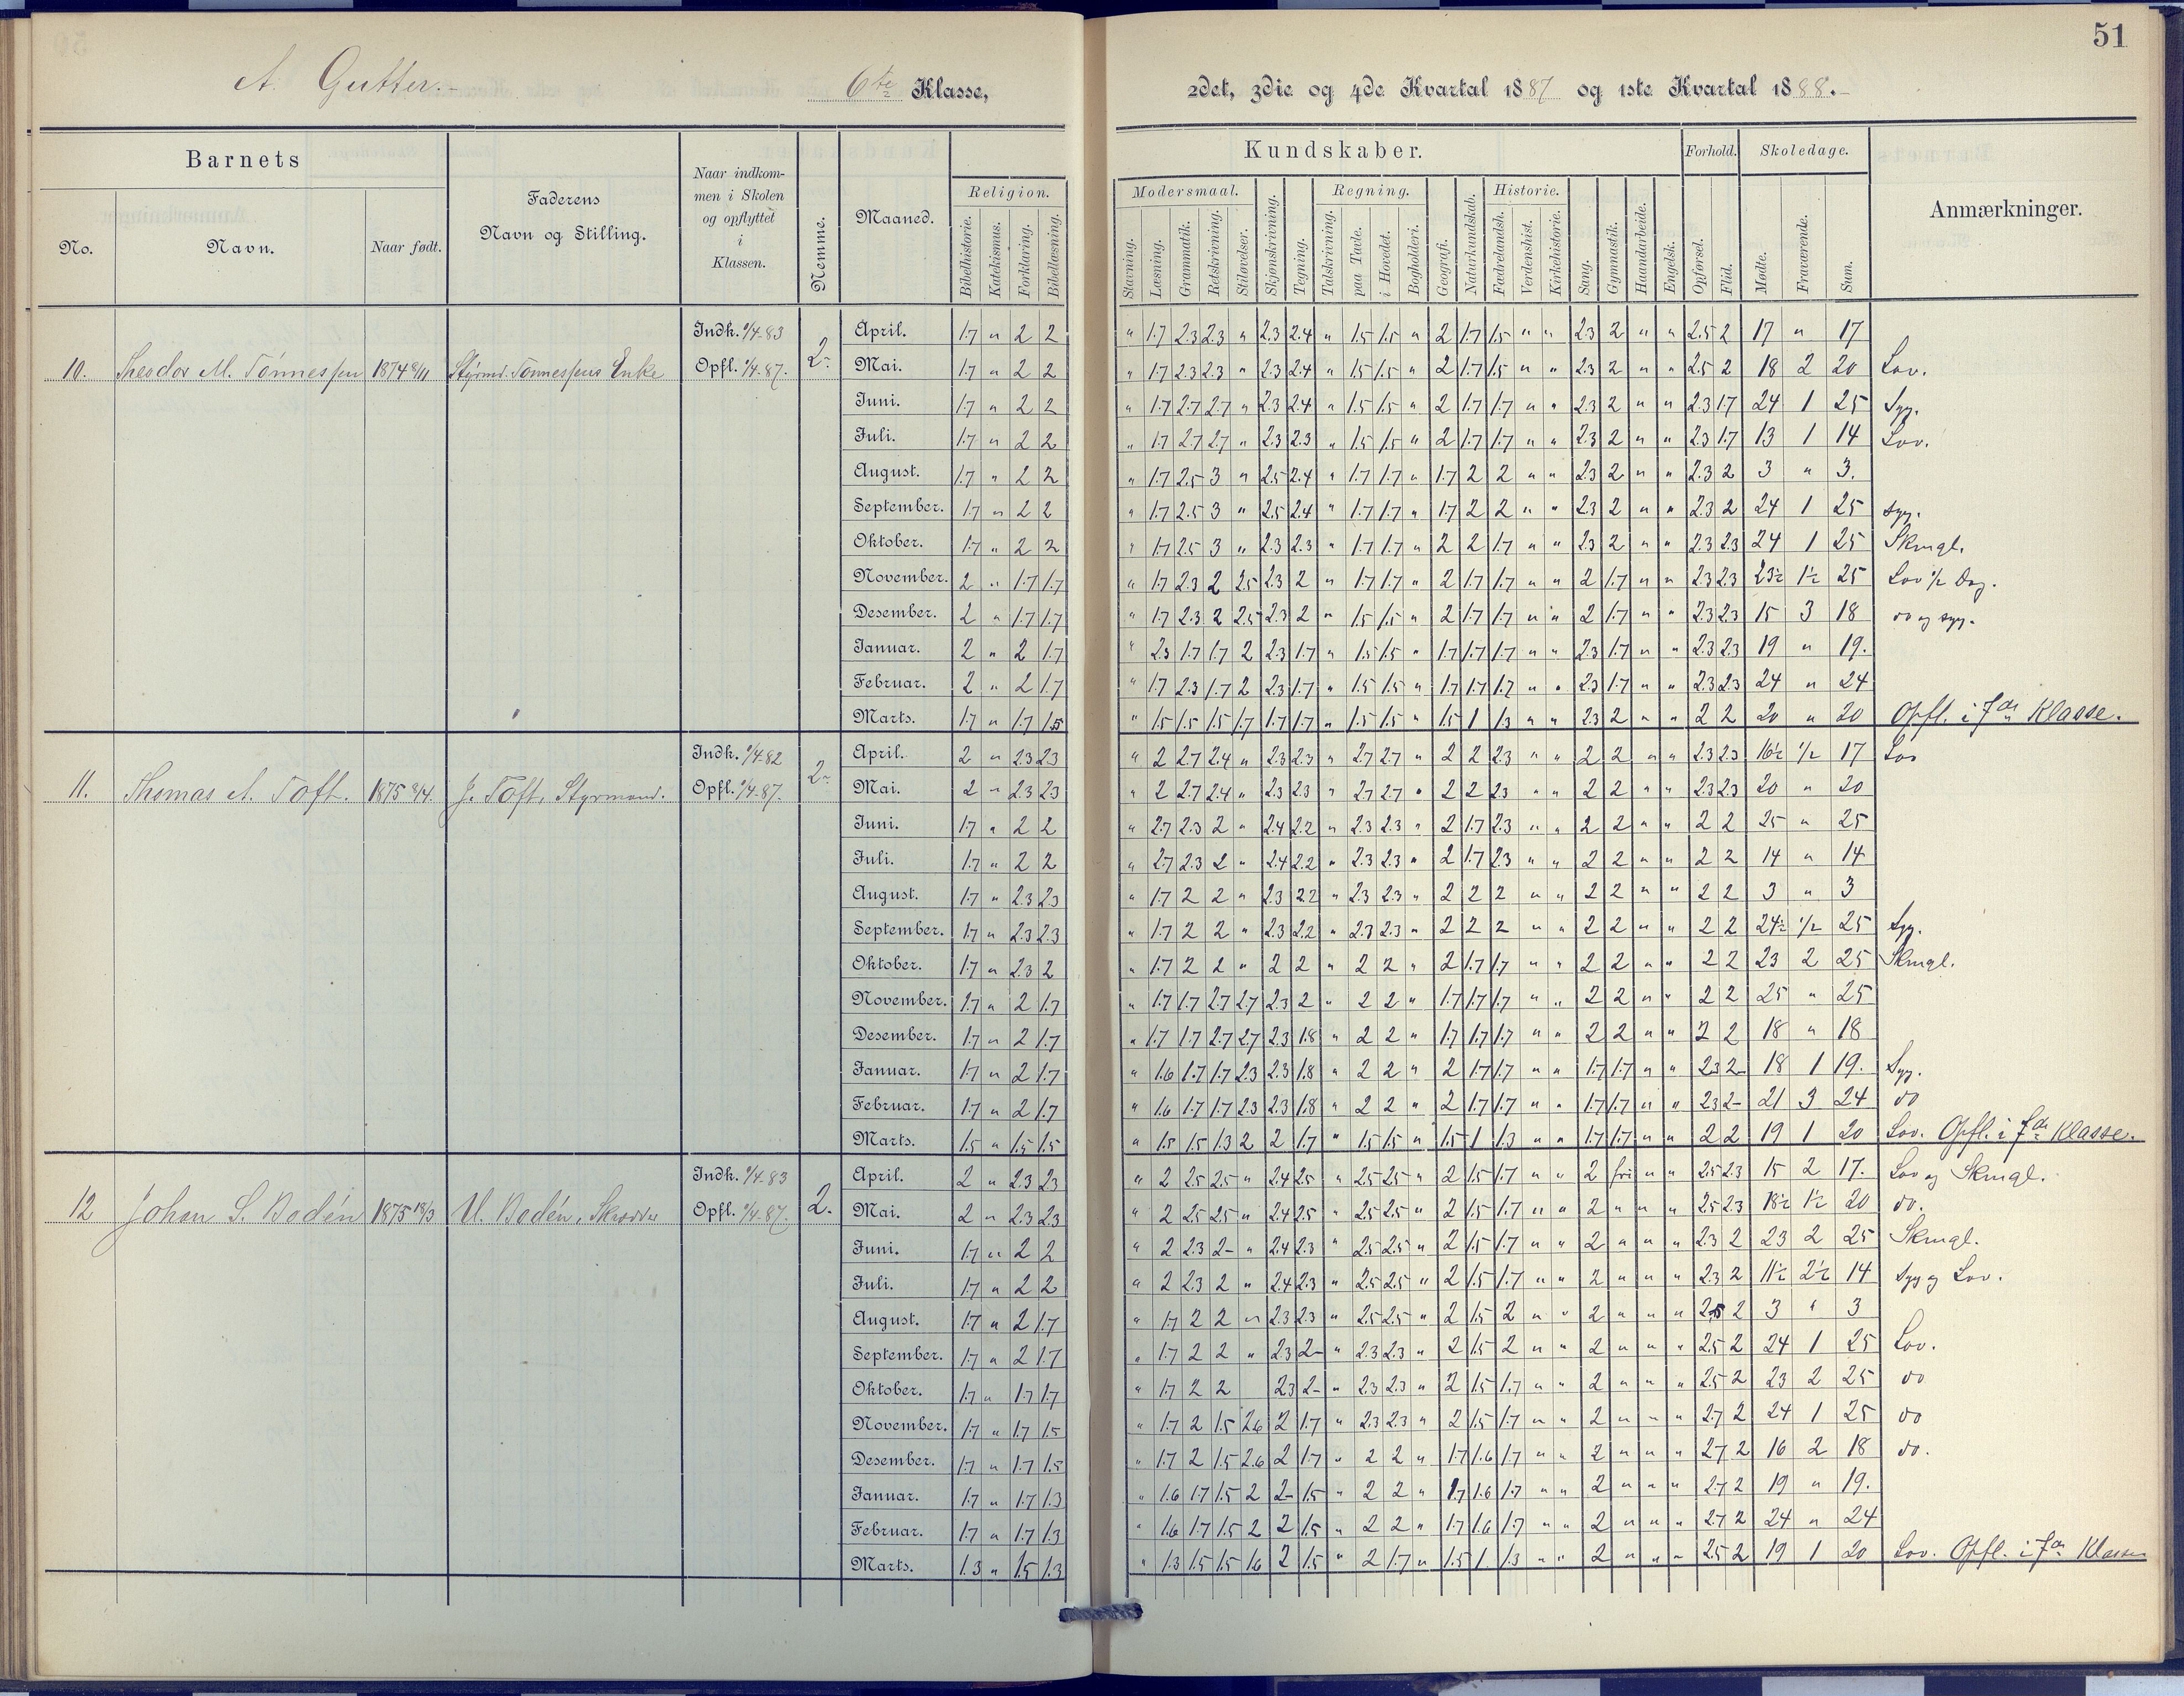 51
A. Gutter.
6te Klasse,
2det, 3die og 4de Kvartal 1887 og 1ste Kvartal 1888.
Barnets
Kundskaber.
Forhold.
Skoledage.
No.
Navn.
Naar født.
Faderens
Navn og Stilling.
Naar indkom-
men i Skolen
og opflyttet
i
Klassen.
Nemme.
Maaned.
Religion.
Bibelhistorie.
Katekismus.
Forklaring.
Bibellæsning.
Modersmaal.
Stavning.
Læsning.
Grammatik.
Retskrivning.
Stiløvelser.
Skjønskrivning.
Tegning.
Regning.
Talskrivning.
paa Tavle.
i Hovedet.
Bogholderi.
Geografi.
Naturkundskab.
Historie.
Fædrelandsh.
Verdenshist.
Kirkehistorie.
Sang.
Gymnastik.
Haandarbeide.
Engelsk.
Opførsel.
Flid.
Mødte.
Fraværende.
Sum.
Anmærkninger.
10. Theodor M. Tönnessen 1874 8/11 Styrmd. Tönnessens Enke
Indk. 1/4-83
Opfl. 1/4-87.
2-
April. 1.7 " 2 2 " 1.7 2.3 2.3 " 2.3 2.4 " 1.5 1.5 " 2 1.7 1.5 " " 2.3 2 " " 2.5 2 17 " 17
Mai. 1.7 " 2 2 " 1.7 2.3 2.3 " 2.3 2.4 " 1.5 1.5 " 2 1.7 1.5 " " 2.3 2 " " 2.5 2 18 2 20 Lov.
Juni. 1.7 " 2 2 " 1.7 2.7 2.7 " 2.3 2.4 " 1.5 1.5 " 2 1.7 1.7 " " 2.3 2 " " 2.3 1.7 24 1 25 Syg.
Juli. 1.7 " 2 2 " 1.7 2.7 2.7 " 2.3 2.3 " 1.5 1.5 " 2 1.7 1.7 " " 2.3 2 " " 2.3 1.7 13 1 14 Lov.
August. 1.7 " 2 2 " 1.7 2.5 3 " 2.5 2.4 " 1.7 1.7 " 1.7 2 2 " " 2.3 2 " " 2.3 2 3 " 3.
September. 1.7 " 2 2 " 1.7 2.5 3 " 2.5 2.4 " 1.7 1.7 " 1.7 2 2 " " 2.3 2 " " 2.3 2 24 1 25 syg.
Oktober. 1.7 " 2 2 " 1.7 2.5 3 " 2.3 2.3 " 1.7 1.7 " 2 2 1.7 " " 2.3 2 " " 2.3 2.3 24 1 25 Skmgl.
November. 2 " 1.7 1.7 " 1.7 2.3 2 2.5 2.3 2 " 1.7 1.7 " 2 1.7 1.7 " " 2 1.7 " " 2.3 2.3 23½ 1½ 25 Lov 1/2 Dag.
Desember. 2 " 1.7 1.7 " 1.7 2.3 2 2.5 2.3 2 " 1.5 1.5 " 2 1.7 1.7 " " 2 1.7 " " 2.3 2.3 15 3 18 do og syg.
Januar. 2 " 2 1.7 " 2.3 1.7 1.7 2 2.3 1.7 " 1.5 1.5 " 1.7 1.7 1.7 " " 2.3 1.7 " " 2.3 2.3 19 " 19.
Februar. 2 " 2 1.7 " 1.7 2.3 1.7 2 2.3 1.7 " 1.5 1.5 " 1.7 1.7 1.7 " " 2.3 1.7 " " 2.3 2.3 24 " 24
Marts. 1.7 " 1.7 1.5 " 1.5 1.5 1.5 1.7 1.7 1.7 " 1.5 1.5 " 1.5 1 1.3 " " 2.3 2 " " 2 2 20 " 20 Opfl. i 7de Klasse.
11. Thomas A. Toft. 1875 2/4. J. Toft, Styrmand.
Indk. 1/4-82
Opfl. 1/4-87.
2-
April. 2 " 2.3 2.3 " 2 2.7 2.4 " 2.3 2.3 " 2.7 2.7 " 2 2 2.3 " " 2 2 " " 2.3 2.3 16½ 1/2 17 Lov
Mai. 2 " 2.3 2.3 " 2 2.7 2.4 " 2.3 2.3 " 2.7 2.7 " 2 2 2.3 " " 2 2 " " 2.3 2.3 20 " 20
Juni. 1.7 " 2 2 " 2.7 2.3 2 " 2.4 2.2 " 2.3 2.3 " 2 1.7 2.3 " " 2 2 " " 2 2 25 " 25
Juli. 1.7 " 2 2 " 2.7 2.3 2 " 2.4 2.2 " 2.3 2.3 " 2 1.7 2.3 " " 2 2 " " 2 2 14 " 14
August. 1.7 " 2.3 2.3 " 1.7 2 2 " 2.3 2.2 " 2.3 2.3 " 2 2 2 " " 2 2 " " 2 2 3 " 3
September. 1.7 " 2.3 2.3 " 1.7 2 2 " 2.3 2.2 " 2.3 2.3 " 2 2 2 " " 2 2 " " 2 2 24½ 1/2 25 Syg.
Oktober. 1.7 " 2.3 2 " 1.7 2 2 " 2 2 " 2 2 " 2 1.7 1.7 " " 2 2 " " 2 2 23 2 25 Skmgl.
November. 1.7 " 2 1.7 " 1.7 1.7 2.7 2.7 2.3 2 " 2 2 " 1.7 1.7 1.7 " " 2 2 " " 2 2 25 " 25
Desember. 1.7 " 2 1.7 " 1.7 1.7 2.7 2.7 2.3 1.8 " 2 2 " 1.7 1.7 1.7 " " 2 2 " " 2 2 18 " 18
Januar. 1.7 " 2 1.7 " 1.6 1.7 1.7 2.3 2.3 1.8 " 2 2 " 2 1.7 1.7 " " 1.7 1.7 " " 2.3 2- 18 1 19. Syg.
Februar. 1.7 " 2 1.7 " 1.6 1.7 1.7 2.3 2.3 1.8 " 2 2 " 2 1.7 1.7 " " 1.7 1.7 " " 2.3 2- 21 3 24 do
Marts. 1.5 " 1.5 1.5 " 1.5 1.5 1.3 2 2 1.7 " 1.5 1.5 " 1.5 1 1.3 " " 1.7 1.7 " " 2 2 19 1 20 Lov. Opfl. i 7de Klasse.
12 Johan S. Bodén 1875 18/3 U. Bodén, Skrædder
Indk. 1/4-83
Opfl. 1/4-87.
2.
April. 2 " 2.3 2.3 " 2 2.5 2.5 " 2.4 2.5 " 2.5 2.5 " 2 1.5 1.7 " " 2 fri " " 2.5 2.3 15 2 17. Lov og Skmgl.
Mai. 2 " 2.3 2.3 " 2 2.5 2.5 " 2.4 2.5 " 2.5 2.5 " 2 1.5 1.7 " " 2 " " " 2.5 2.3 18½ 1½ 20 do.
Juni. 1.7 " 2 2 " 2 2.3 2- " 2.4 2.3 " 2.5 2.5 " 2 1.5 1.7 " " 2 " " " 2.3 2 23 2 25 Skmgl.
Juli. 1.7 " 2 2 " 2 2.3 2 " 2.4 2.3 " 2.5 2.5 " 2 1.5 1.7 " " 2 " " " 2.3 2 11½ 2½ 14 syg og Lov.
August. 1.7 " 2 1.7 " 1.7 2 2 " 2.3 2.3 " 2.5 2.5 " 2 1.5 2 " " 2 " " " 2.5 2 3 " 3
September. 1.7 " 2 1.7 " 1.7 2 2 " 2.3 2- " 2.3 2.3 " 2 1.5 2 " " 2 " " " 2.5 2 24 1 25 Lov.
Oktober. 1.7 " 1.7 1.7 " 1.7 2 2 2.3 2- " 2.3 2.3 " 2 1.5 1.7 " " 2 " " " 2.5 2 23 2 25 do
November. 1.7 " 1.7 1.5 " 1.7 2 1.5 2.6 2 1.7 " 2.3 2.3 " 2 1.5 1.7 " " 2 " " " 2.7 2 24 1 25 do
Desember. 1.7 " 1.7 1.5 " 1.7 2 1.5 2.6 2 1.7 " 2 2 " 1.7 1.6 1.7 " " 2 " " " 2.7 2 16 2 18 do.
Januar. 1.7 " 1.7 1.3 " 1.6 1.7 1.5 2 2- 1.5 " 2 2 " 1.7 1.6 1.7 " " 2 " " " 2.7 2 19 " 19.
Februar. 1.7 " 1.7 1.3 " 1.6 1.7 1.5 2 2 1.5 " 2 2 " 1.7 1.6 1.7 " " 2 " " " 2.7 2 24 " 24
Marts. 1.3 " 1.5 1.3 " 1.3 1.5 1.5 1.6 2 1.5 " 2 1.7 " 1.5 1 1.3 " " 2 " " " 2.5 2 19 1 20 Lov. Opfl. i 7de Klasse